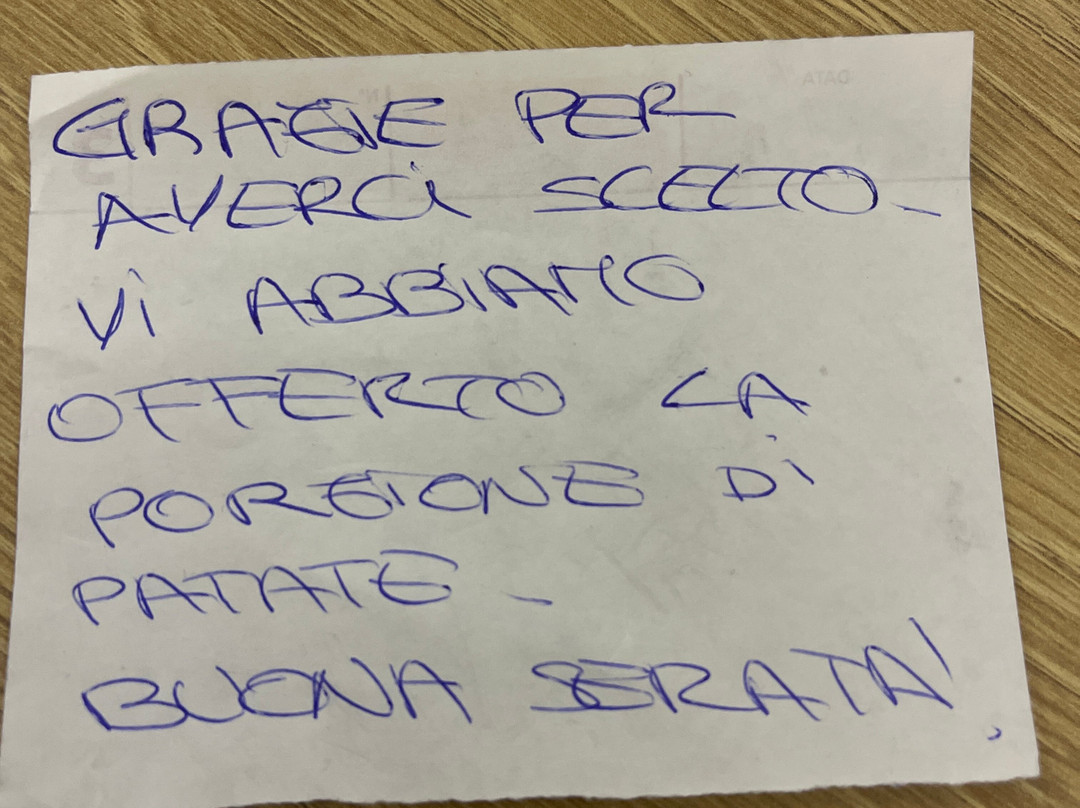 GRAZIE PER
AVERCI SCELTO_
VI ABBIAMO
OFFERTO LA
PORZIONE DI
PATATE_
BUONA SERATA!
DATA
N°